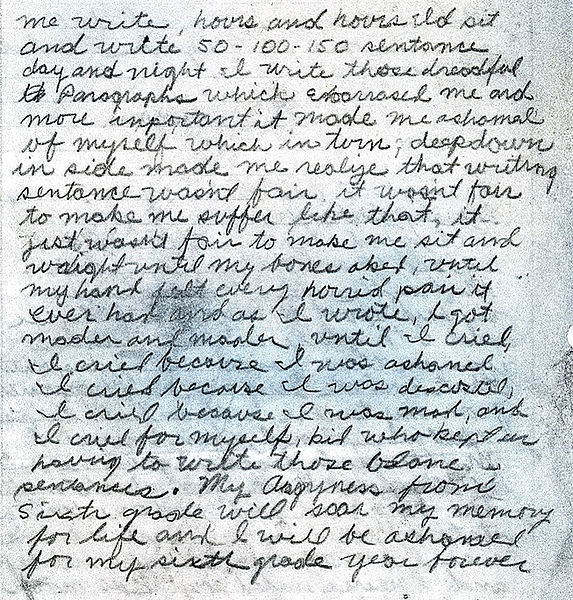 me write, hours and hours I'd sit
and write 50-100-150 sentance
day and night I write those dreadful
Paragraphs which embarrased me and
more important it made me ashamed
of myself which in turn, deepdown
in side made me realize that writing
sentance wasnt fair it wasnt fair
to make me suffer like that, it
just wasn't fair to make me sit and
until my bones aked, until
my hand felt every horred pain it
ever had and as I wrote, I got
mader and mader, until I cried,
I cried because I was ashamed
I cried because I was descosted,
I cried because I was mad, and
I cried for myself, kid who kept on
having to write those
sentances. My Angryness from
Sixth grade will scar my memory
for life and I will be ashamed
for my sixth grade year forever